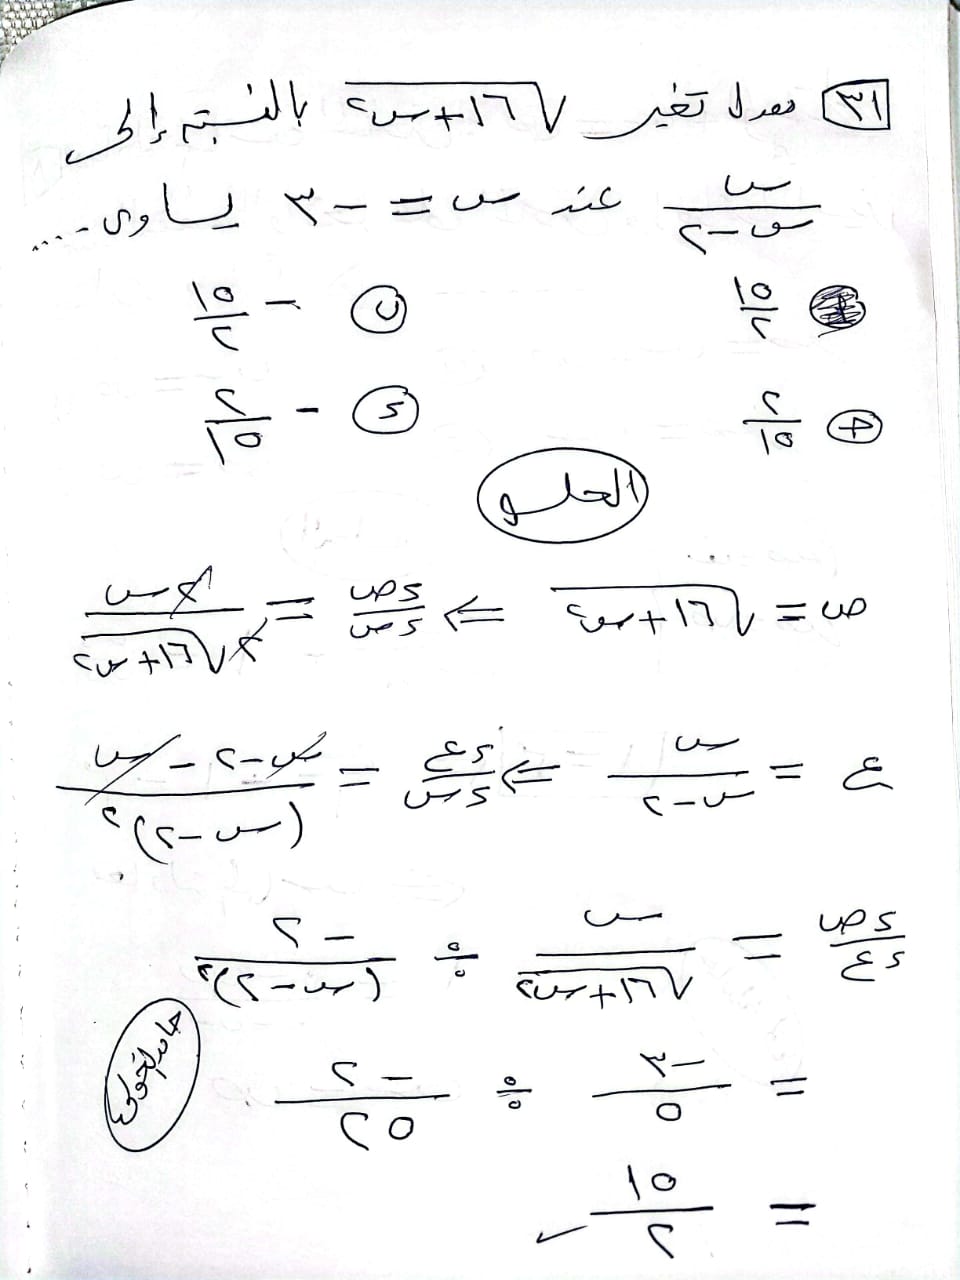 ٣١ معدل تغير √(١٦+س٢) بالنسبة إلى
س/(س-٢) عند س = -٣ يساوى ....
أ ١٥/٢ ب - ١٥/٢
ج ٢/١٥ د - ٢/١٥
الحلـــو
ص = √(١٦+س٢) ⇐ ءص/ءس = ٢س/(٢√(١٦+س٢))
ع = س/(س-٢) ⇐ ءع/ءس = (س-٢-س)/(س-٢)٢
ءص/ءع = س/√(١٦+س٢) ÷ -٢/(س-٢)٢
= -٣/٥ ÷ -٢/٢٥
= ١٥/٢ ✓